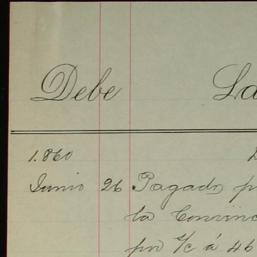 Debe La
1.860
Junio 26 Pagado p
la Convenc
por %c á 46